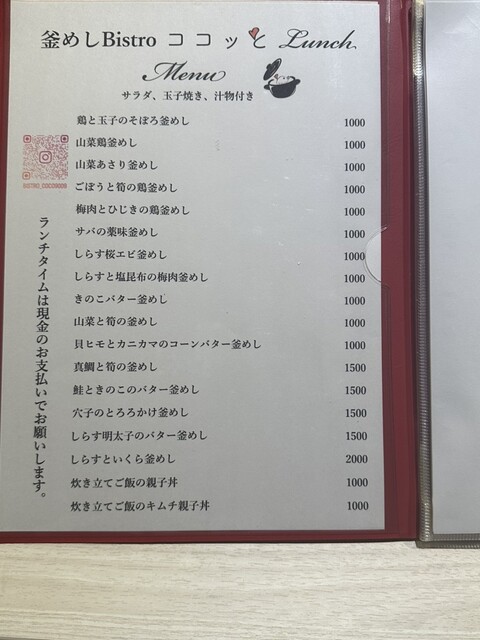 釜めしBistro ココッと Lunch
Menu
サラダ、玉子焼き、汁物付き
鶏と玉子のそぼろ釜めし 1000
山菜鶏釜めし 1000
山菜あさり釜めし 1000
ごぼうと筍の鶏釜めし 1000
梅肉とひじきの鶏釜めし 1000
サバの薬味釜めし 1000
しらす桜エビ釜めし 1000
しらすと塩昆布の梅肉釜めし 1000
きのこバター釜めし 1000
山菜と筍の釜めし 1000
貝ヒモとカニカマのコーンバター釜めし 1000
真鯛と筍の釜めし 1500
鮭ときのこのバター釜めし 1500
穴子のとろろかけ釜めし 1500
しらす明太子のバター釜めし 1500
しらすといくら釜めし 2000
炊き立てご飯の親子丼 1000
炊き立てご飯のキムチ親子丼 1000
BISTRO_COCO9009
ランチタイムは現金のお支払いでお願いします。